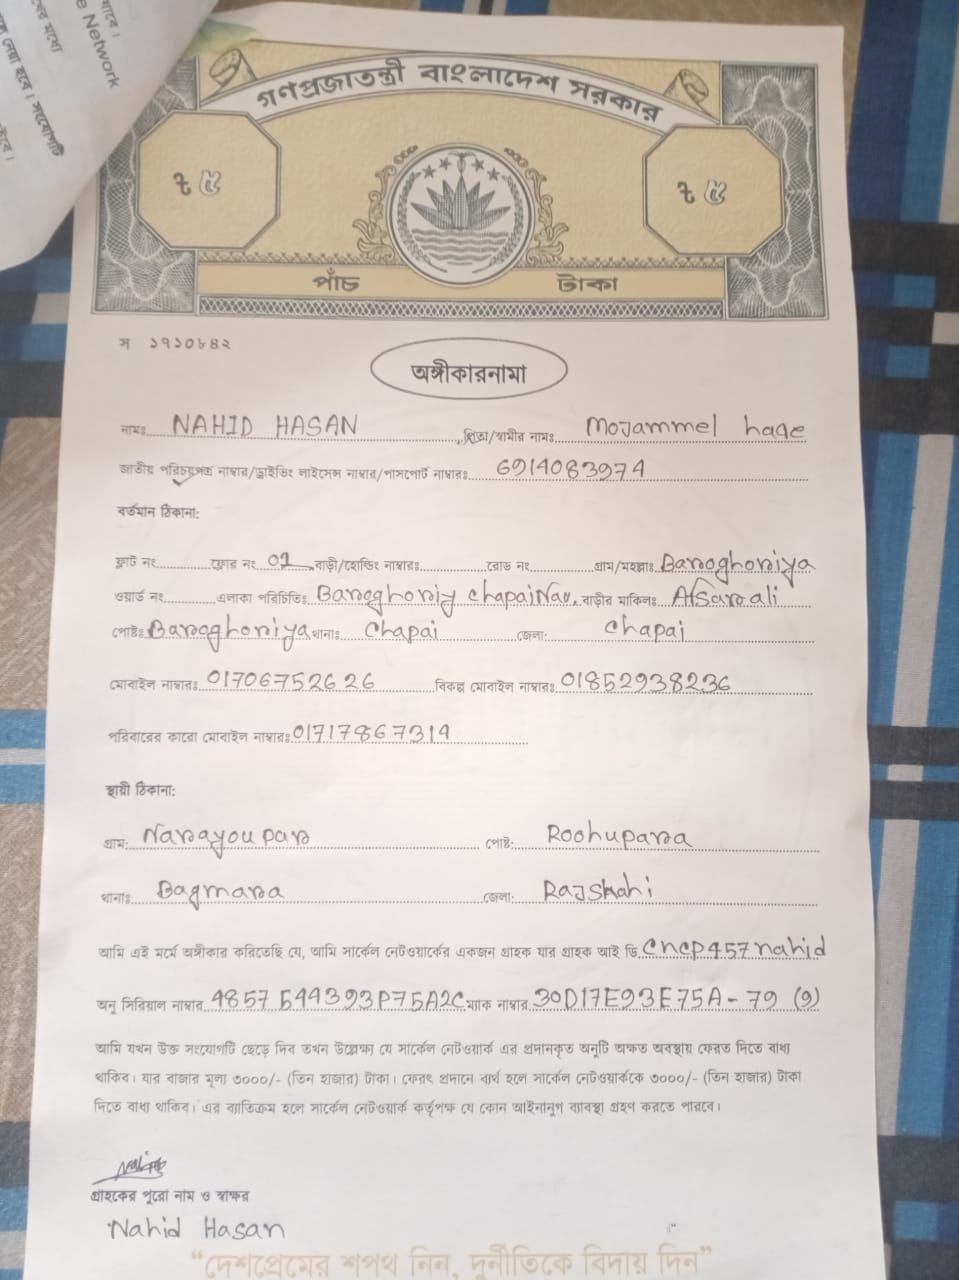 যাবে।
e Network
গণপ্রজাতন্ত্রী বাংলাদেশ সরকার
৳ ৫
৳ ৫
পাঁচ টাকা
স ১৭১০৮৪২
অঙ্গীকারনামা
নামঃ NAHID HASAN পিতা/স্বামীর নামঃ Mojammel haqe
জাতীয় পরিচয়পত্র নাম্বার/ড্রাইভিং লাইসেন্স নাম্বার/পাসপোর্ট নাম্বারঃ 6914083974
বর্তমান ঠিকানা:
ফ্লাট নং ফ্লোর নং 01 বাড়ী/হোল্ডিং নাম্বারঃ রোড নং গ্রাম/মহল্লাঃ Baroghoriya
ওয়ার্ড নং এলাকা পরিচিতিঃ Baroghoriy chapaiNau, বাড়ীর মালিকঃ Afsarali
পোষ্টঃ Baroghoriya থানাঃ chapai জেলা: chapai
মোবাইল নাম্বারঃ 01706752626 বিকল্প মোবাইল নাম্বারঃ 01852938236
পরিবারের কারো মোবাইল নাম্বারঃ 01717867319
স্থায়ী ঠিকানা:
গ্রাম: Narayoupara পোষ্ট: Roohupara
থানাঃ Bagmara জেলা: Rajshahi
আমি এই মর্মে অঙ্গীকার করিতেছি যে, আমি সার্কেল নেটওয়ার্কের একজন গ্রাহক যার গ্রাহক আই ডি cncp457nahid
অনু সিরিয়াল নাম্বার 4857544393P75A2C ম্যাক নাম্বার 30D17E93E75A-79 (9)
আমি যখন উক্ত সংযোগটি ছেড়ে দিব তখন উল্লেক্ষ্য যে সার্কেল নেটওয়ার্ক এর প্রদানকৃত অনুটি অক্ষত অবস্থায় ফেরত দিতে বাধ্য
থাকিব। যার বাজার মূল্য ৩০০০/- (তিন হাজার) টাকা। ফেরৎ প্রদানে ব্যর্থ হলে সার্কেল নেটওয়ার্ককে ৩০০০/- (তিন হাজার) টাকা
দিতে বাধ্য থাকিব। এর ব্যতিক্রম হলে সার্কেল নেটওয়ার্ক কর্তৃপক্ষ যে কোন আইনানুগ ব্যাবস্থা গ্রহণ করতে পারবে।
গ্রাহকের পুরো নাম ও স্বাক্ষর
Nahid Hasan
“দেশপ্রেমের শপথ নিন, দুর্নীতিকে বিদায় দিন”